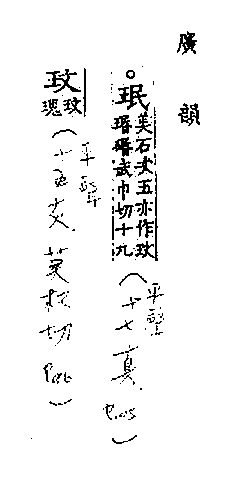 廣韻
珉 美石次玉亦作玟
瑉瑉武巾切十九
(平聲 十七真
玟 玟
瑰
(平聲 十五灰 莫杯切